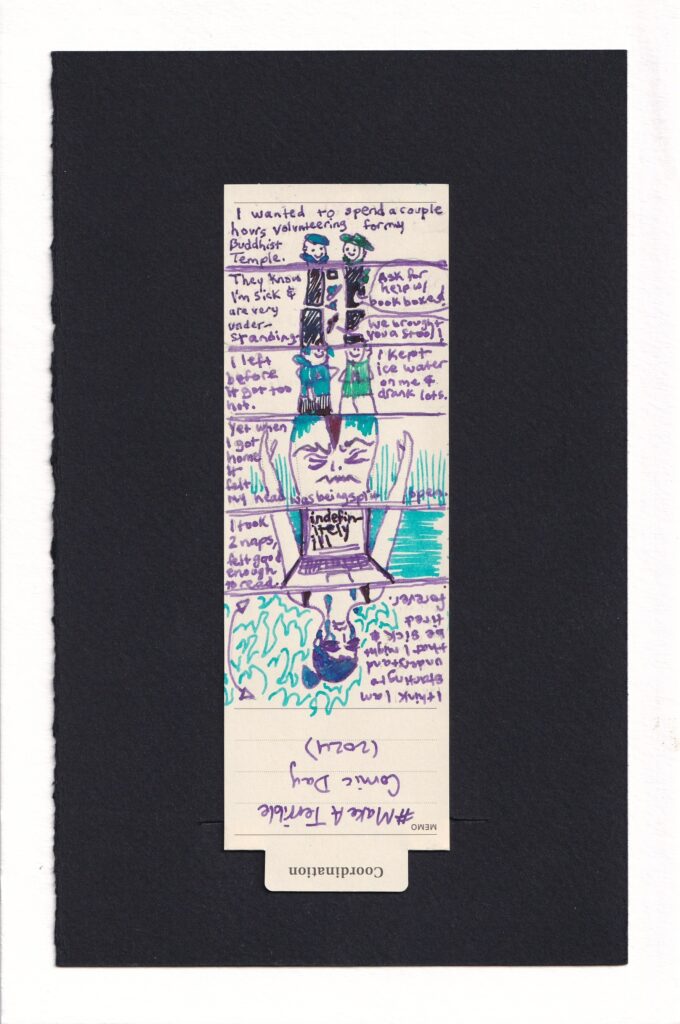 I wanted to spend a couple
hours volunteering for my
Buddhist
Temple.
They know
I'm sick &
are very
under-
standing.
Ask for
help w/
book boxes!
We brought
you a stool!
I left
before
it got too
hot.
I kept
ice water
on me &
drank lots.
Yet when
I got
home
it
felt
my head was being split open.
I took
2 naps,
felt good
enough
to read.
indefin-
itely
ill
I think I am
starting to
understand
that I might
be sick &
tired
forever.
Coordination
MEMO
#Make A Terrible
Comic Day
(2024)